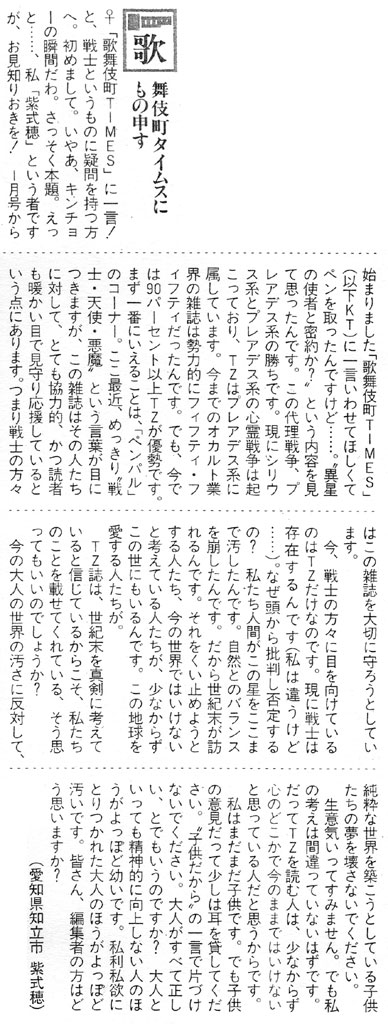 歌
舞伎町タイムスに
もの申す
♀「歌舞伎町TIMES」に一言！
と、戦士というものに疑問を持つ方
へ。初めまして。いやあ、キンチョ
ーの瞬間だわ。さっそく本題。えっ
と……、私「紫式穂」という者です
が、お見知りおきを！　１月号から
始まりました「歌舞伎町TIMES」
（以下KT）に一言いわせてほしくて
ペンを取ったんですけど……。〝異星
の使者と密約か？〟という内容を見
て思ったんです。この代理戦争、プ
レアデス系の勝ちです。現にシリウ
ス系とプレアデス系の心霊戦争は起
こっており、TZはプレアデス系に
属しています。今までのオカルト業
界の雑誌は勢力的にフィフティ・フ
ィフティだったんです。でも、今で
は90パーセント以上TZが優勢です。
まず一番にいえることは、「ペンパル」
のコーナー。ここ最近、めっきり〝戦
士・天使・悪魔〟という言葉が目に
つきますが、この雑誌はその人たち
に対して、とても協力的、かつ読者
も暖かい目で見守り応援していると
いう点にあります。つまり戦士の方々
はこの雑誌を大切に守ろうとしてい
ます。
　今、戦士の方々に目を向けている
のはTZだけなのです。現に戦士は
存在するんです（私は違うけど
……）。なぜ頭から批判し否定する
の？　私たち人間がこの星をここま
で汚したんです。自然とのバランス
を崩したんです。だから世紀末が訪
れるんです。それをくい止めようと
する人たち、今の世界ではいけない
と考えている人たちが、少なからず
この世にもいるんです。この地球を
愛する人たちが。
　TZ誌は、世紀末を真剣に考えて
いると信じているからこそ、私たち
のことを載せてくれている、そう思
ってもいいのでしょうか？
　今の大人の世界の汚さに反対して、
純粋な世界を築こうとしている子供
たちの夢を壊さないでください。
　生意気いってすみません。でも私
の考えは間違っていないはずです。
だってTZを読む人は、少なからず
心のどこかで今のままではいけない
と思っている人だと思うからです。
　私はまだまだ子供です。でも子供
の意見だって少しは耳を貸してくだ
さい。〝子供だから〟の一言で片づけ
ないでください。大人がすべて正し
い、とでもいうのですか？　大人と
いっても精神的に向上しない人のほ
うがよっぽど幼いです。私利私欲に
とりつかれた大人のほうがよっぽど
汚いです。皆さん、編集者の方はど
う思いますか？
（愛知県知立市　紫式穂）